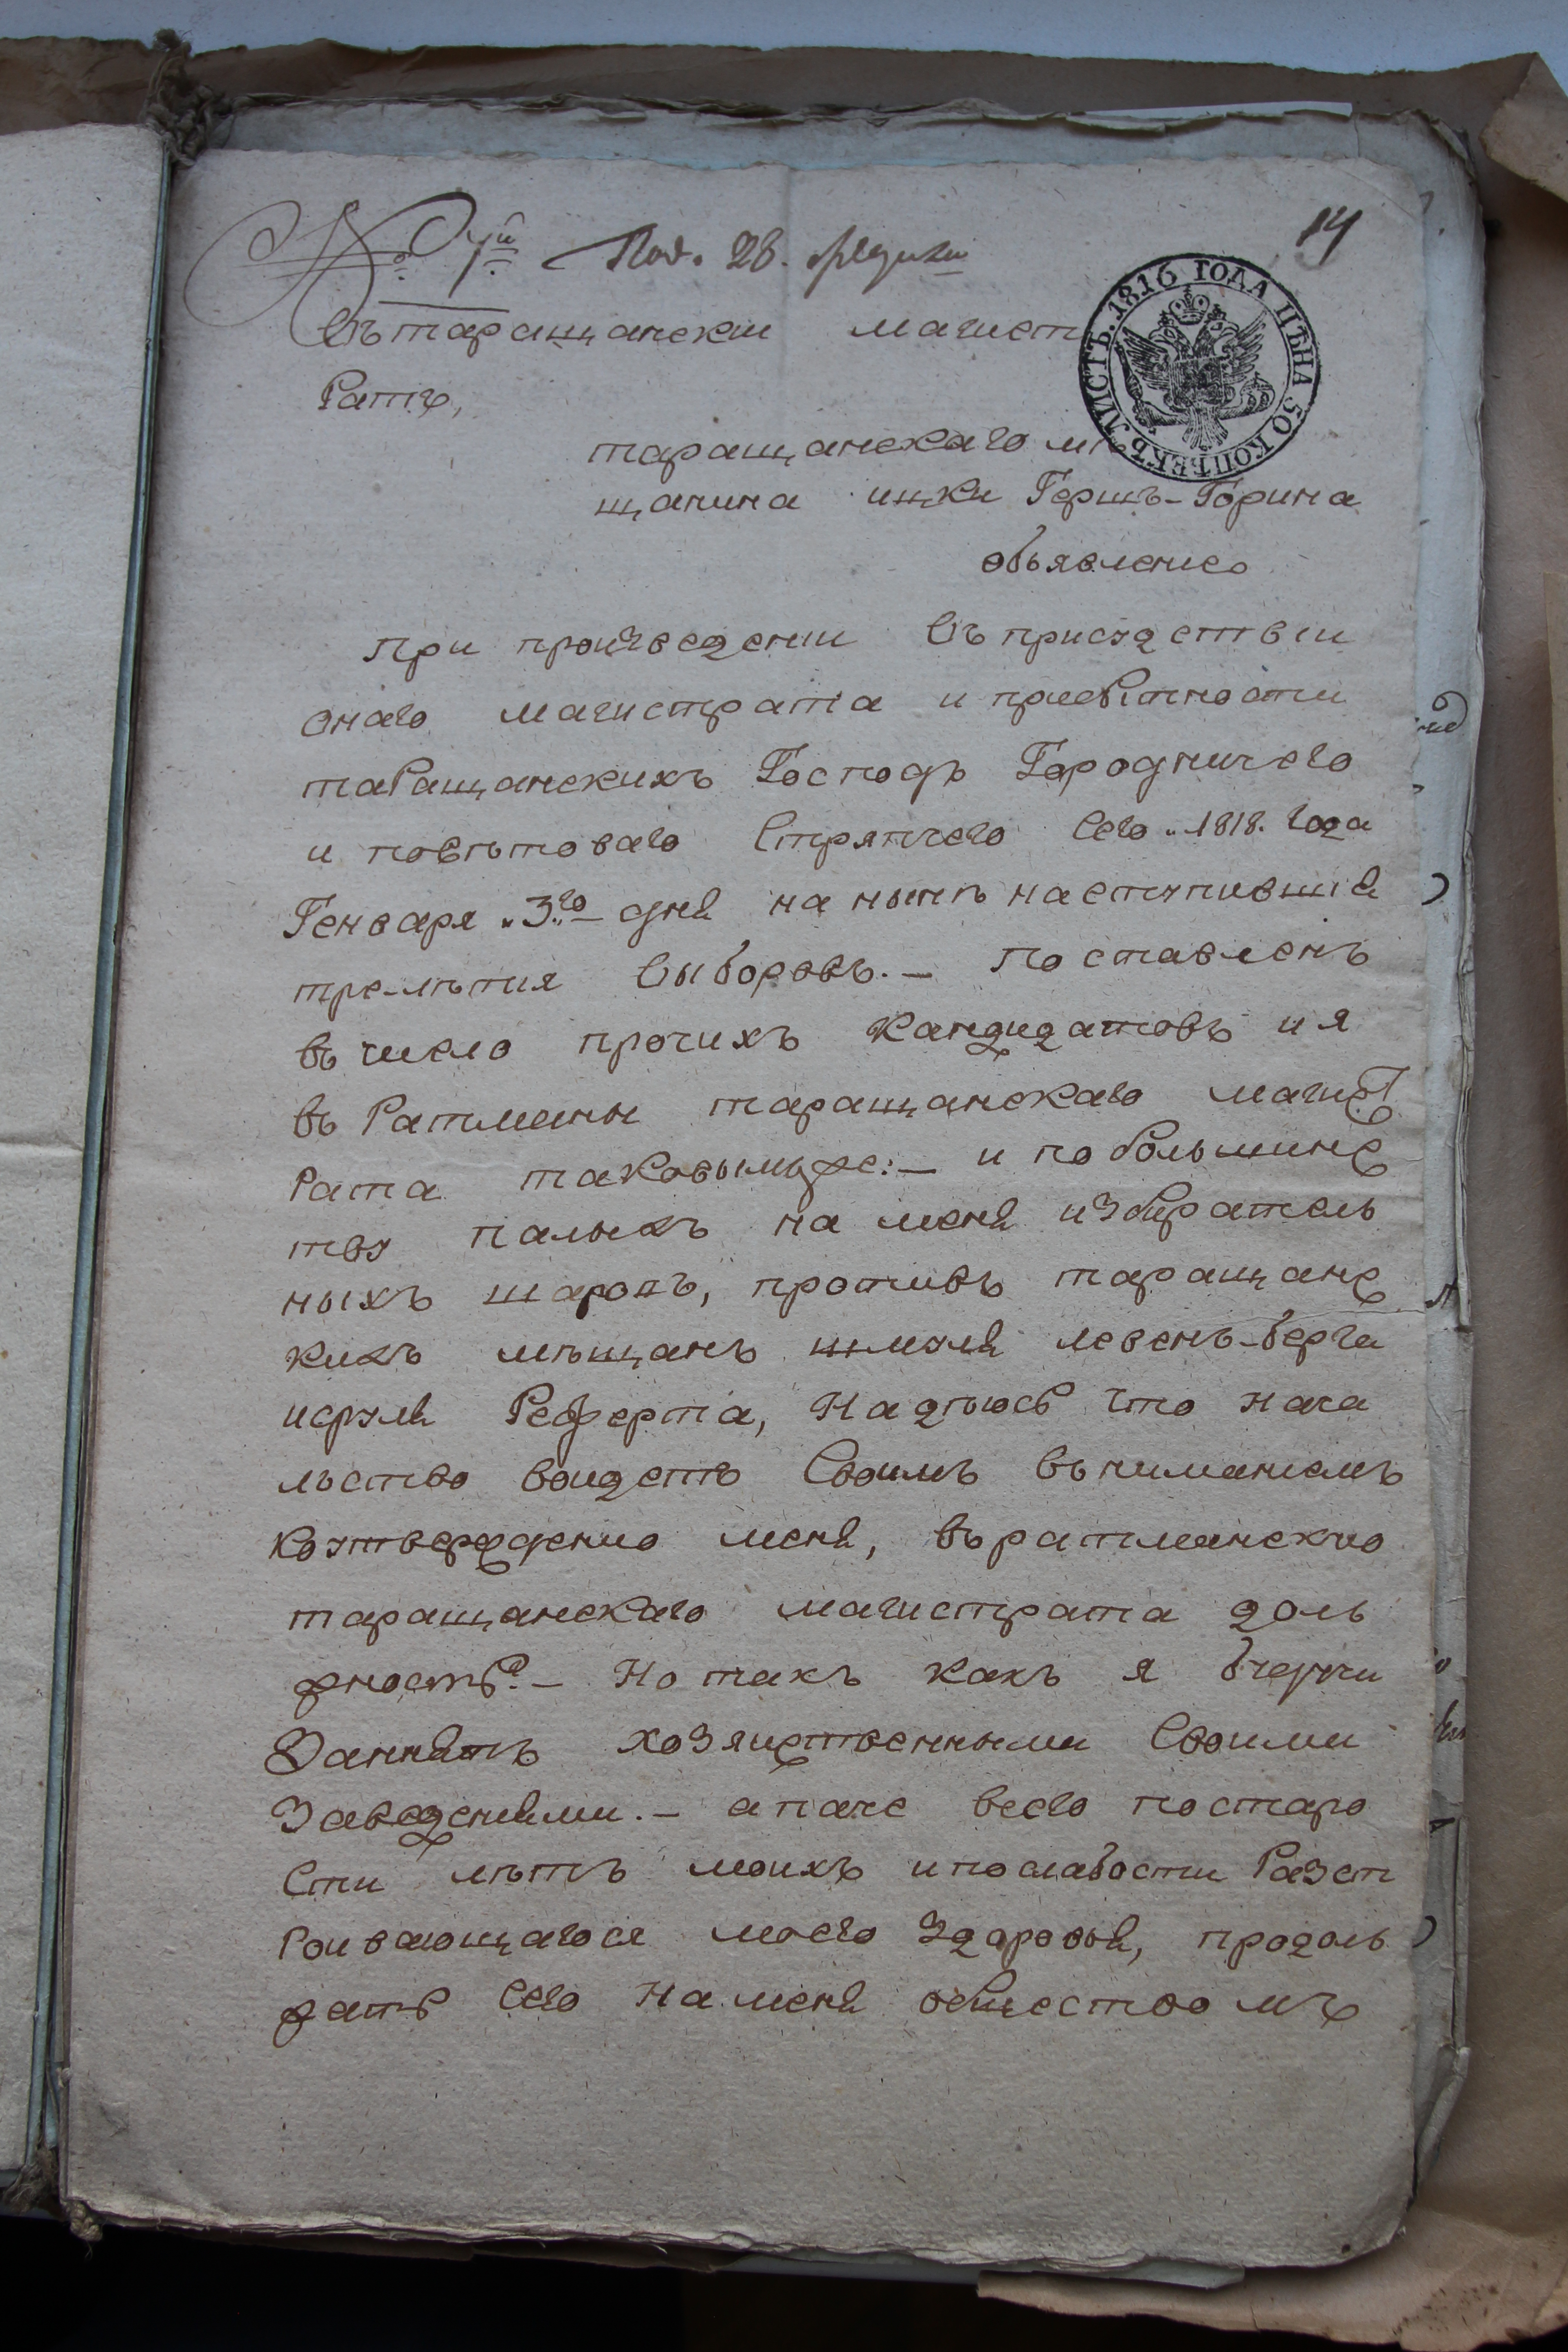 14
№ 7й Пол. 28. Генваря
ЛИСТЪ. 1816 ГОДА ЦѢНА 50 КОПѢЕКЪ
Въ таращанскии магист
Ратъ,
таращанскаго мѣ
щанина ицки Гершъ-Горина
объявление
При произведении Въ присудствии
онаго магистрата и приевѣтности
таРащанскихъ Господъ Городничего
и повѣтоваго Стряпчего Сего „1818. Года
Генваря „3го дня на нынѣ наступивший
тре-лѣтия Выборовъ. — поставленъ
въ число прочихъ Кандидатовъ и я
въ Ратманы таращанскаго магист
Рата таковымже: — и по большинс
тву палыхъ на меня избиратель
ныхъ шаровъ, противъ таращанс
кихъ мѣщанъ шмуля левенъ-берга
исруля Реферта, Надѣюсь Что нача
льство воидетъ Своимъ вниманиемъ
ко утверждению меня, въ ратманскую
таращанскаго магистрата дол
жность? — Но такъ какъ я бучучи
Заннятъ хозяиственными Своими
Заведениями. — а паче всего по старо
Сти лѣтъ моихъ и по слабости Разст
Роивающагося моего Здоровья, продоль
жать Сего На меня обществомъ